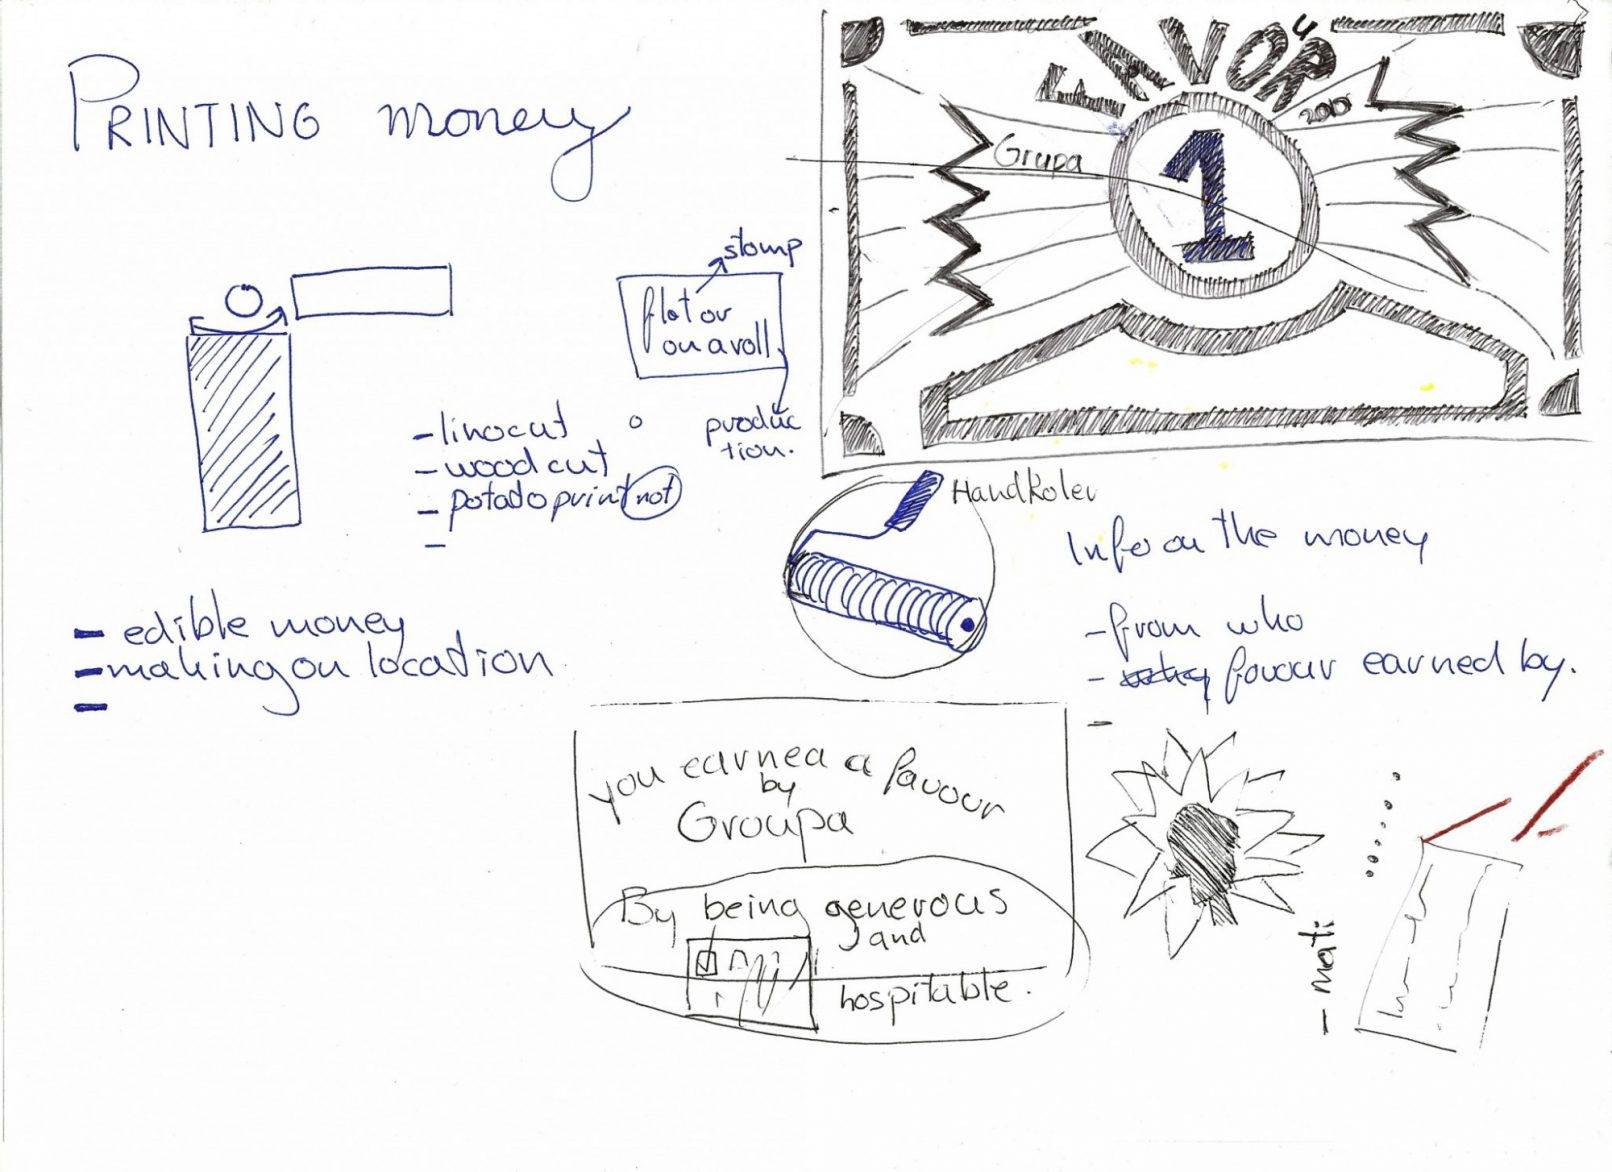 PRINTING money
stomp
flat or
on a roll
produc
tion.
- linocut
- woodcut
- potado print not
-
- edible money
- making on location
-
FAVOUR
2010
Grupa
1
HandRoler
Info on the money
- from who
- favour earned by.
-
you earned a favour
by
Groupa
By being generous
and
hospitable.
- mati